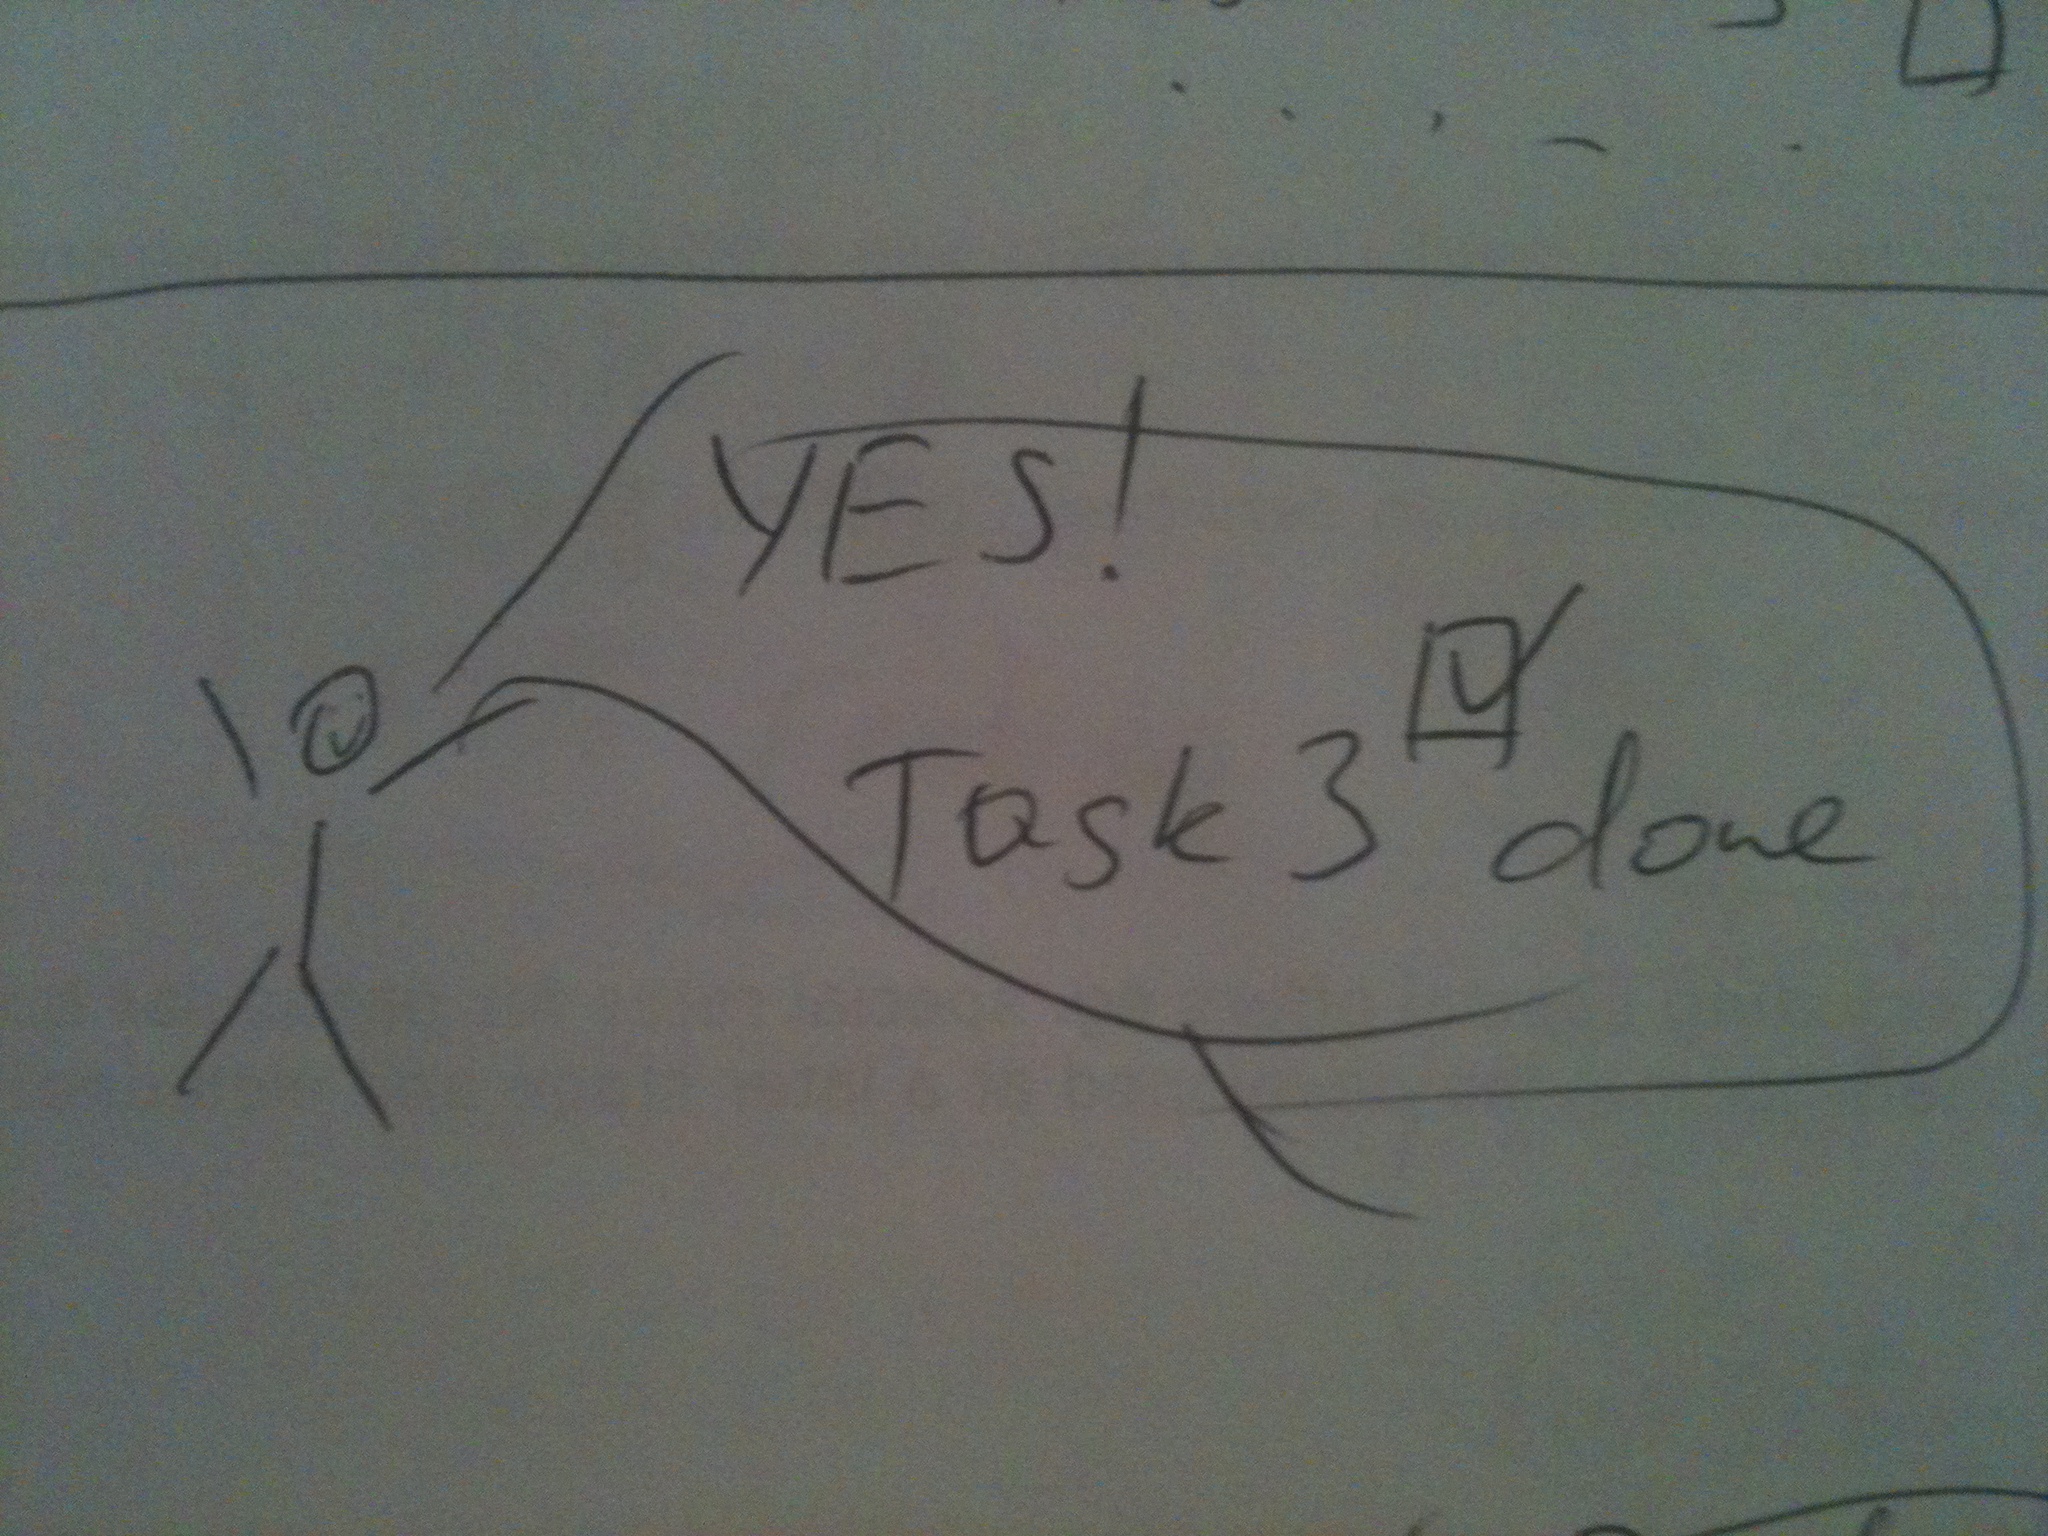 YES!
Task 3 ☑ done